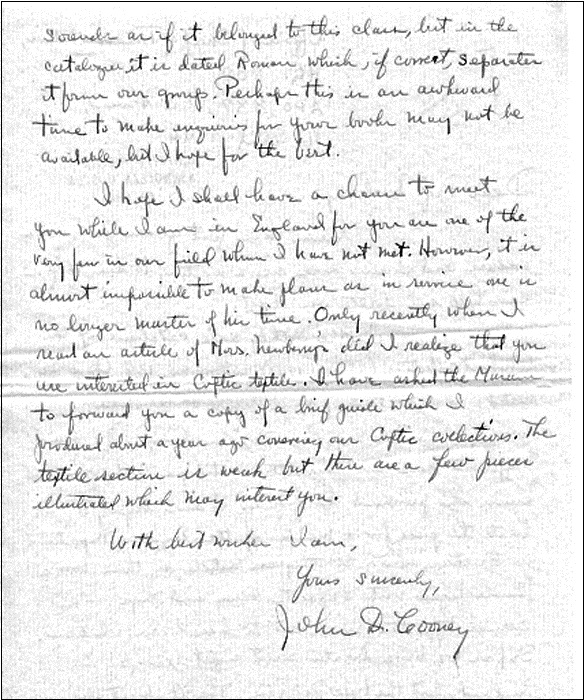 sounds as if it belonged to this class, but in the
catalogue it is dated Roman which, if correct, separates
it from our group. Perhaps this is an awkward
time to make enquiries for your books may not be
available, but I hope for the best.
I hope I shall have a chance to meet
you while I am in England for you are one of the
very few in our field whom I have not met. However, it is
almost impossible to make plans as in service one is
no longer master of his time. Only recently when I
read an article of Mrs. Newberry's did I realize that you
are interested in Coptic textile. I have asked the Museum
to forward you a copy of a brief guide which I
produced about a year ago covering our Coptic collections. The
textile section is weak but there are a few pieces
illustrated which may interest you.
With best wishes I am,
Yours sincerely,
John D. Cooney